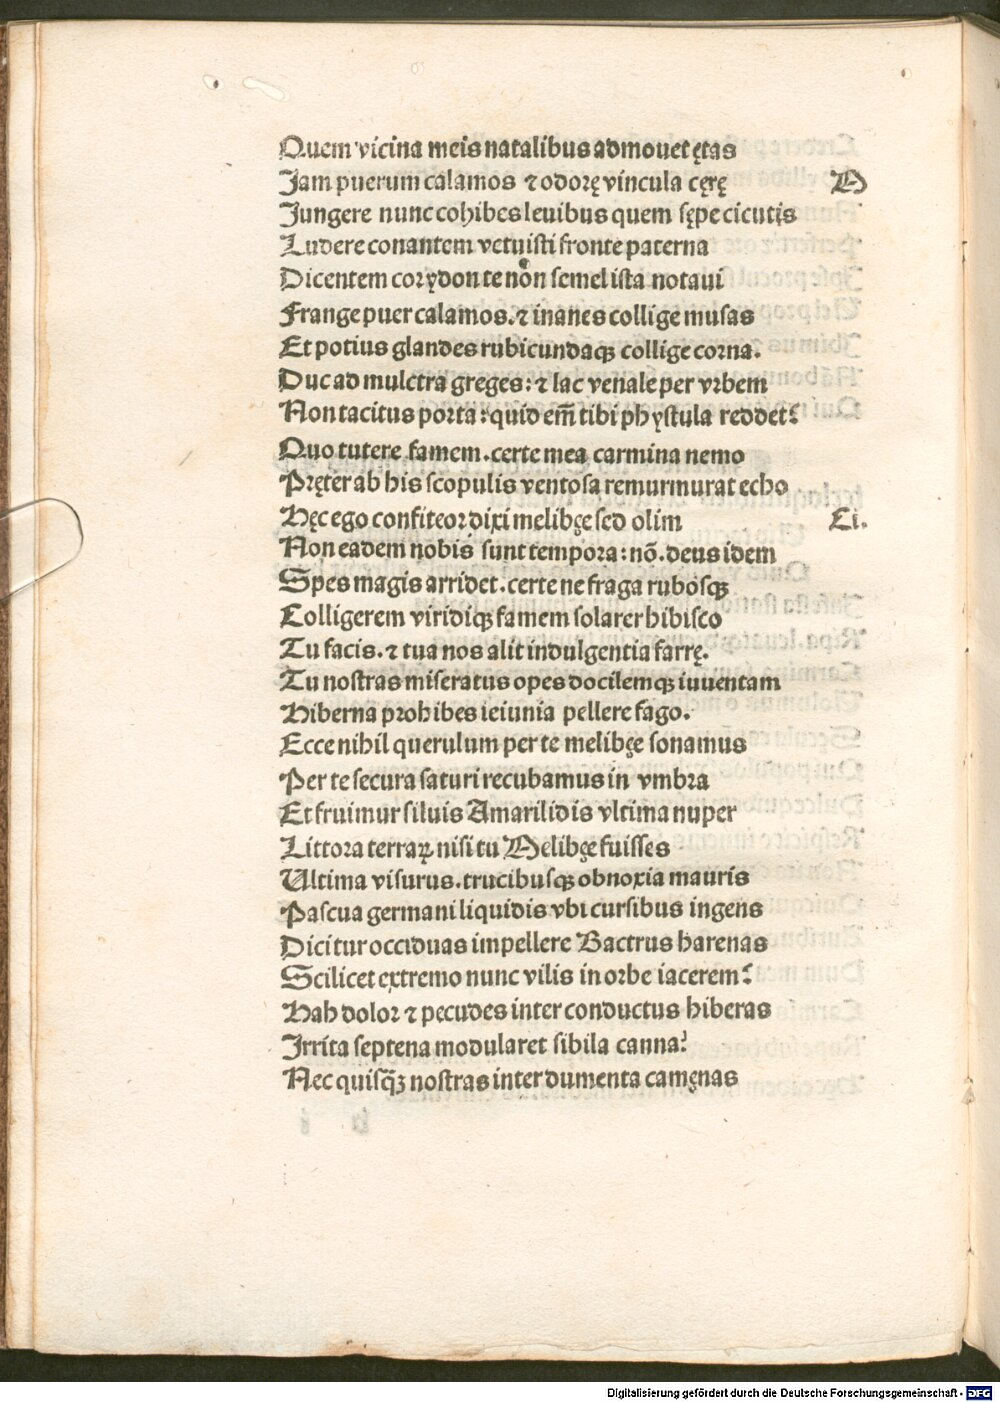 Quem vicina meis natalibus admouet ętas
Jam puerum calamos ⁊ odorę vincula cęrę M
Jungere nunc cohibes leuibus quem sępe cicutis
Ludere conantem vetuisti fronte paterna
Dicentem corydon te nōn semel ista notaui
Frange puer calamos. ⁊ inanes collige musas
Et potius glandes rubicundaqꝫ collige corna.
Duc ad mulctra greges: ⁊ lac venale per vrbem
Non tacitus porta: quid em̄ tibi phystula reddet?
Quo tutere famem. certe mea carmina nemo
Pręter ab his scopulis ventosa remurmurat echo
Hęc ego confiteor dixi melibęe sed olim Ci.
Non eadem nobis sunt tempora: nō. deus idem
Spes magis arridet. certe ne fraga rubosqꝫ
Colligerem viridiqꝫ famem solarer hibisco
Tu facis. ⁊ tua nos alit indulgentia farrę.
Tu nostras miseratus opes docilemqꝫ iuuentam
Hiberna prohibes ieiunia pellere fago.
Ecce nihil querulum per te melibęe sonamus
Per te secura saturi recubamus in vmbra
Et fruimur siluis Amarilidis vltima nuper
Littora terraꝝ nisi tu Melibęe fuisses
Ultima visurus. trucibusqꝫ obnoxia mauris
Pascua germani liquidis vbi cursibus ingens
Dicitur occiduas impellere Bactrus harenas
Scilicet extremo nunc vilis in orbe iacerem?
Hah dolor ⁊ pecudes inter conductus hiberas
Irrita septena modularet sibila canna?
Nec quisq̄ꝫ nostras inter dumenta camęnas
Digitalisierung gefördert durch die Deutsche Forschungsgemeinschaft - DFG